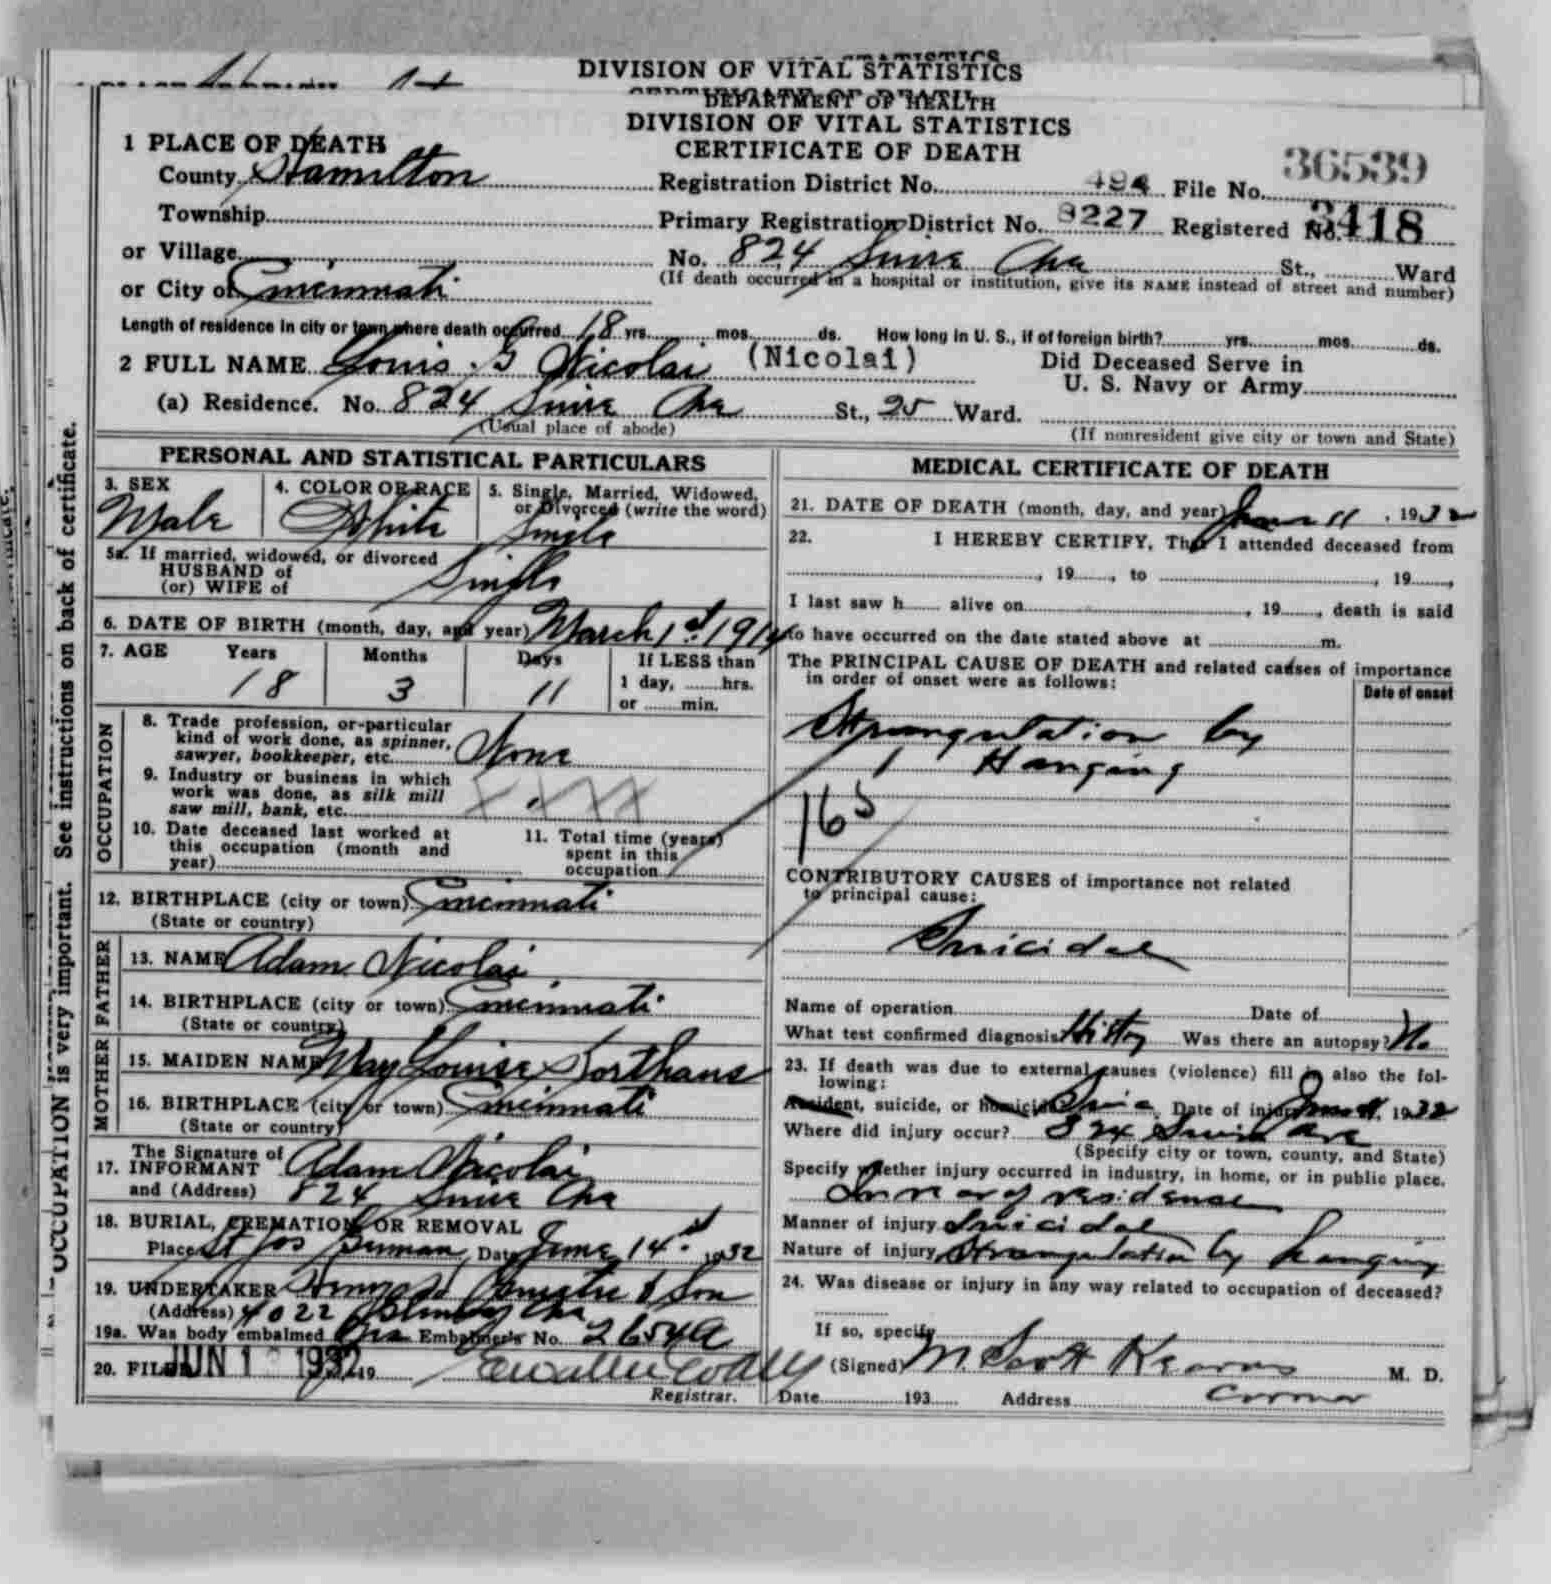 DIVISION OF VITAL STATISTICS
DEPARTMENT OF HEALTH
DIVISION OF VITAL STATISTICS
CERTIFICATE OF DEATH
1 PLACE OF DEATH
County Hamilton Registration District No. 494 File No. 36539
Township Primary Registration District No. 8227 Registered No. 3418
or Village No. 824 Ave St., Ward
(If death occurred in a hospital or institution, give its NAME instead of street and number)
or City of Cincinnati
Length of residence in city or town where death occurred 18 yrs. mos. ds. How long in U. S., if of foreign birth? yrs. mos. ds.
2 FULL NAME Louis G Nicolai (Nicolai) Did Deceased Serve in
U. S. Navy or Army
(a) Residence. No. 824 Ave St., 25 Ward.
(Usual place of abode) (If nonresident give city or town and State)
PERSONAL AND STATISTICAL PARTICULARS
3. SEX 4. COLOR OR RACE 5. Single, Married, Widowed,
or Divorced (write the word)
Male White Single
5a. If married, widowed, or divorced
HUSBAND of
(or) WIFE of Single
6. DATE OF BIRTH (month, day, and year) March 1st 1914
7. AGE Years Months Days If LESS than
1 day, hrs.
or min.
18 3 11
OCCUPATION
8. Trade profession, or particular
kind of work done, as spinner,
sawyer, bookkeeper, etc. None
9. Industry or business in which
work was done, as silk mill
saw mill, bank, etc. XXXX
10. Date deceased last worked at
this occupation (month and
year)
11. Total time (years)
spent in this
occupation
12. BIRTHPLACE (city or town) Cincinnati
(State or country)
FATHER
13. NAME Adam Nicolai
14. BIRTHPLACE (city or town) Cincinnati
(State or country)
MOTHER
15. MAIDEN NAME May Louise Korthaus
16. BIRTHPLACE (city or town) Cincinnati
(State or country)
The Signature of
17. INFORMANT Adam Nicolai
and (Address) 824 Ave
18. BURIAL, CREMATION OR REMOVAL
Place St Jos German Date June 14th 1932
19. UNDERTAKER & Son
(Address) 4022 Ave
19a. Was body embalmed Yes Embalmer's No. 2654A
20. FILED JUN 1 1932 19
Registrar.
MEDICAL CERTIFICATE OF DEATH
21. DATE OF DEATH (month, day, and year) June 11, 1932
22. I HEREBY CERTIFY, That I attended deceased from
, 19 , to , 19 ,
I last saw h alive on , 19 , death is said
to have occurred on the date stated above at m.
The PRINCIPAL CAUSE OF DEATH and related causes of importance
in order of onset were as follows:
Date of onset
Strangulation by
Hanging
165
CONTRIBUTORY CAUSES of importance not related
to principal cause:
Suicidal
Name of operation Date of
What test confirmed diagnosis History Was there an autopsy? No
23. If death was due to external causes (violence) fill in also the fol-
lowing:
Accident, suicide, or homicide Date of injury June 11, 1932
Where did injury occur? 824 Ave
(Specify city or town, county, and State)
Specify whether injury occurred in industry, in home, or in public place.
In rear of residense
Manner of injury Suicidal
Nature of injury Strangulation by hanging
24. Was disease or injury in any way related to occupation of deceased?
If so, specify
(Signed) M Scott Kearns M. D.
Date 193 Address Coroner
OCCUPATION is very important. See instructions on back of certificate.